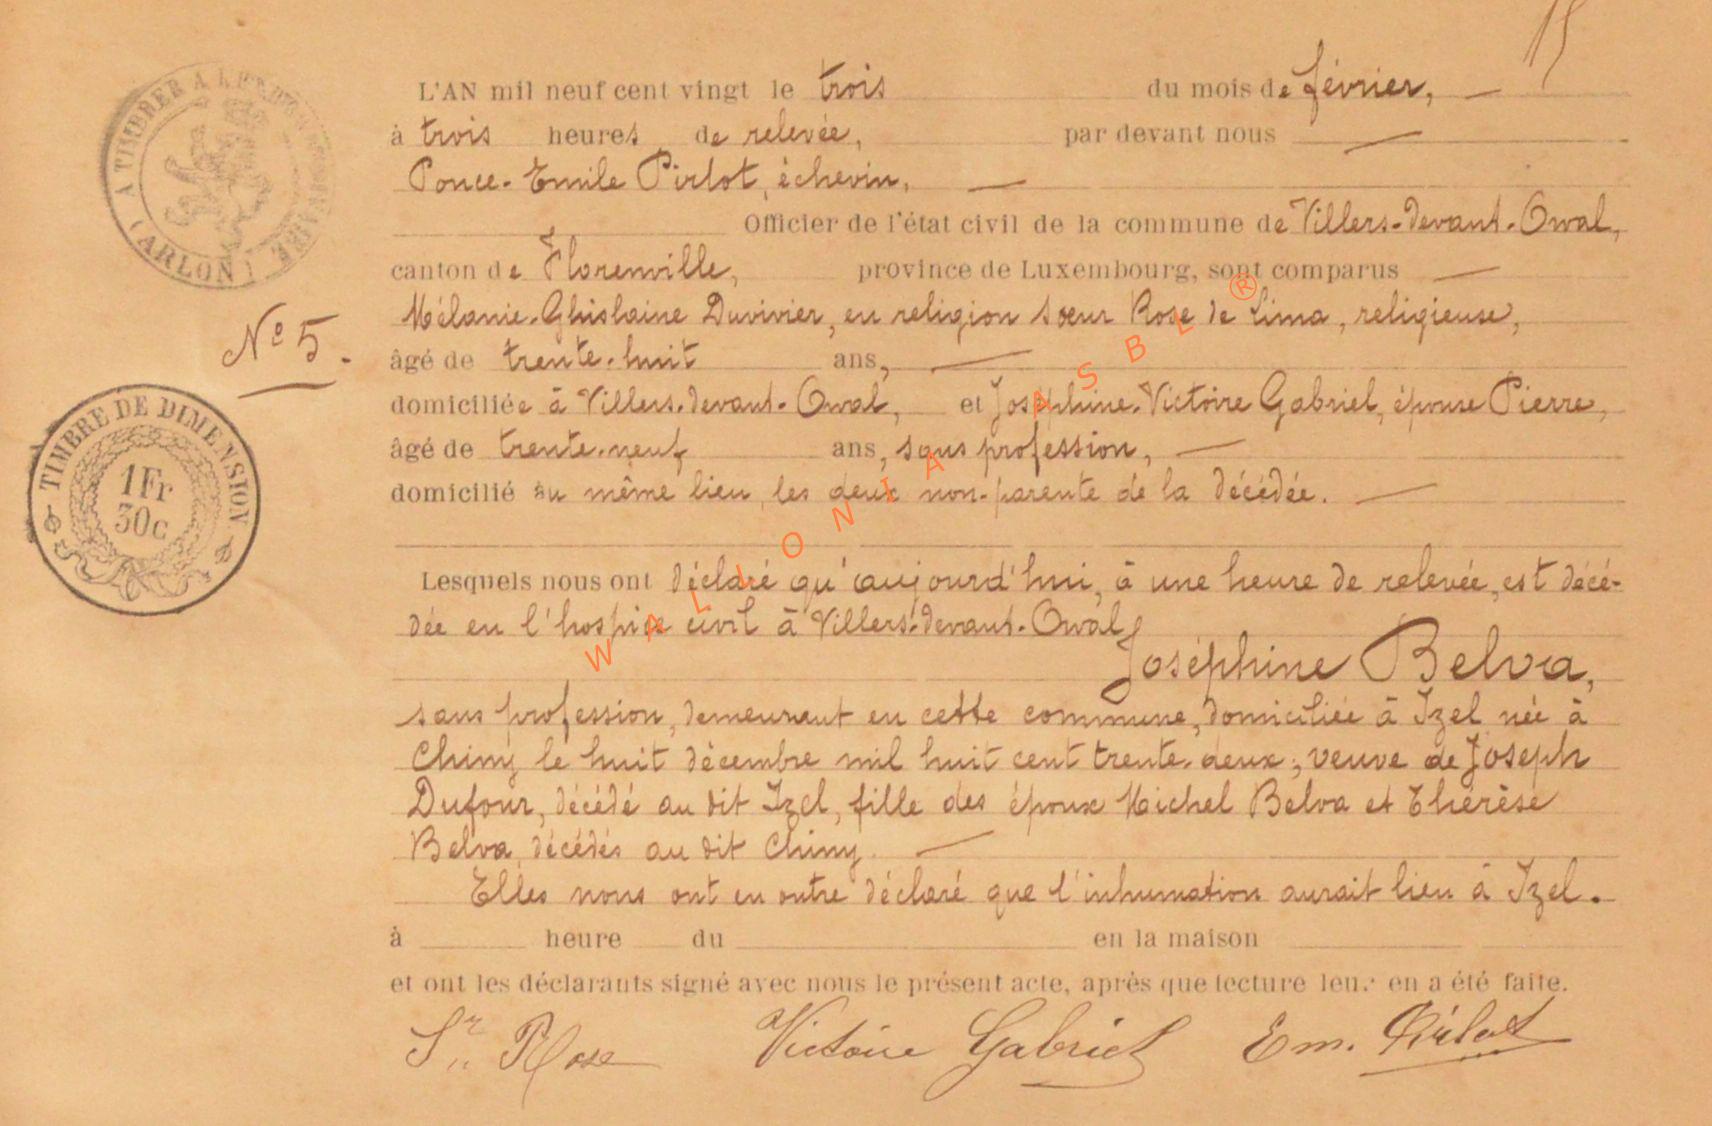 15
L'AN mil neuf cent vingt le trois du mois de février, —
à trois heures de relevée, par devant nous —
Ponce-Emile Pirlot, échevin, —
Officier de l'état civil de la commune de Villers-devant-Orval,
canton de Florenville, province de Luxembourg, sont comparus —
Mélanie-Ghislaine Duvivier, en religion sœur Rose de Lima, religieuse,
âgé de trente-huit ans, —
domiciliée à Villers-devant-Orval, et Joséphine-Victoire Gabriel, épouse Pierre,
âgé de trente-neuf ans, sans profession, —
domicilié au même lieu, les deux non-parente de la décédée. —
Lesquels nous ont déclaré qu'aujourd'hui, à une heure de relevée, est décé-
dée en l'hospice civil à Villers-devant-Orval,
Joséphine Belva,
sans profession, demeurant en cette commune, domiciliée à Izel née à
Chiny le huit décembre mil huit cent trente-deux, veuve de Joseph
Dufour, décédé au dit Izel, fille des époux Michel Belva et Thérèse
Belva, décédés au dit Chiny. —
Elles nous ont en outre déclaré que l'inhumation aurait lieu à Izel.
à heure du en la maison
et ont les déclarants signé avec nous le présent acte, après que lecture leur en a été faite.
Sr Rose Victoire Gabriel Em. Pirlot
A TIMBRER A L'EXTRAORDINAIRE
(ARLON)
N° 5.
TIMBRE DE DIMENSION
1Fr
30c
WALLONIA ASBL ®